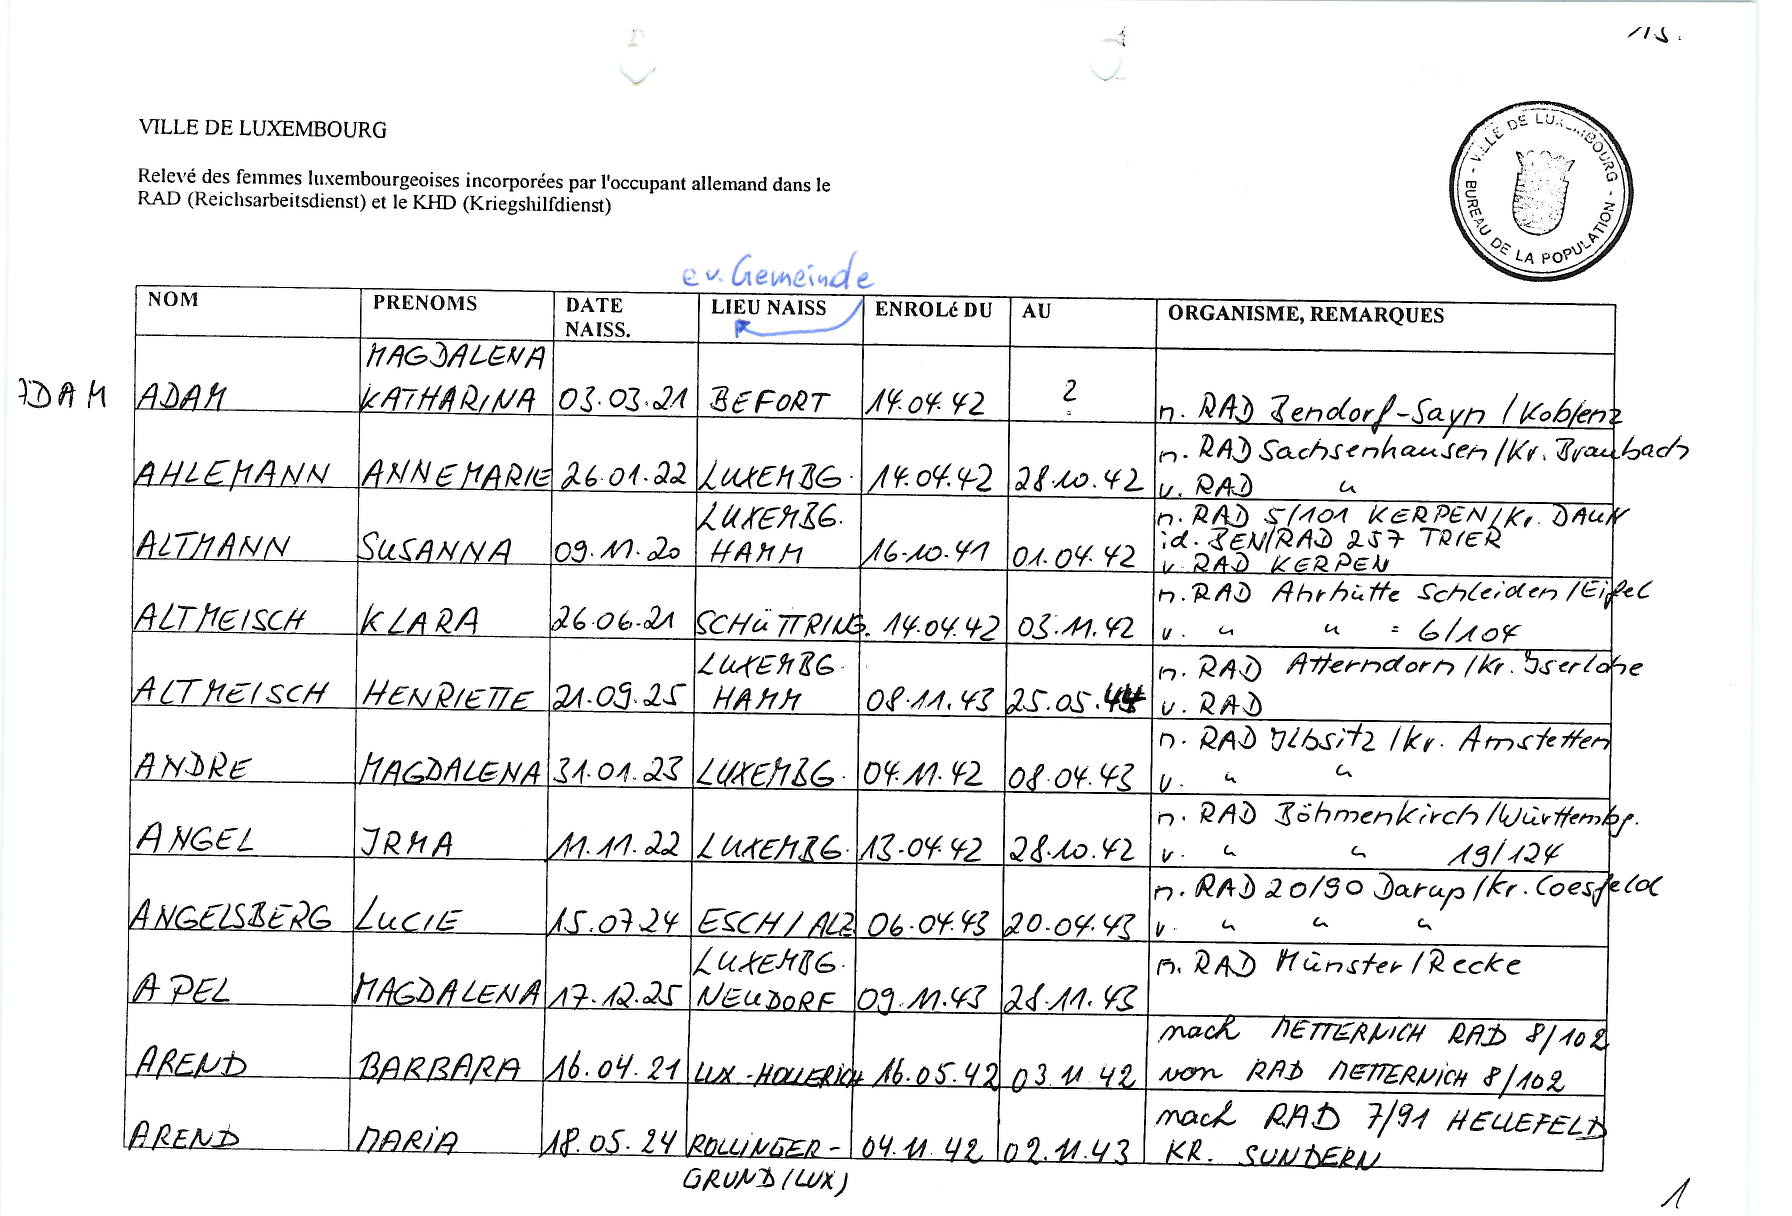 115.
VILLE DE LUXEMBOURG
Relevé des femmes luxembourgeoises incorporées par l'occupant allemand dans le
RAD (Reichsarbeitsdienst) et le KHD (Kriegshilfdienst)
- VILLE DE LUXEMBOURG - BUREAU DE LA POPULATION
ev. Gemeinde
NOM PRENOMS DATE NAISS. LIEU NAISS ENROLé DU AU ORGANISME, REMARQUES
MAGDALENA
ADAM ADAM KATHARINA 03.03.21 BEFORT 14.04.42 ? n. RAD Bendorf-Sayn / Koblenz
n. RAD Sachsenhausen / Kr. Braubach
AHLEMANN ANNEMARIE 26.01.22 LUXEMBG. 14.04.42 28.10.42 v. RAD "
LUXEMBG. n. RAD 5/101 KERPEN / Kr. DAUN
id. BEN/RAD 257 TRIER
ALTMANN SUSANNA 09.11.20 HAMM 16.10.41 01.04.42 v. RAD KERPEN
n. RAD Ahrhütte Schleiden / Eifel
ALTMEISCH KLARA 26.06.21 SCHÜTTRING. 14.04.42 03.11.42 v. " " = 6/104
LUXEMBG. n. RAD Atterndorn / Kr. Iserlohe
ALTMEISCH HENRIETTE 21.09.25 HAMM 08.11.43 25.05.44 v. RAD
n. RAD Ilbsitz / Kr. Amstetten
ANDRE MAGDALENA 31.01.23 LUXEMBG. 04.11.42 08.04.43 v. " "
n. RAD Böhmenkirch / Württembg.
ANGEL IRMA 11.11.22 LUXEMBG. 13.04.42 28.10.42 v. " " 19/124
n. RAD 20/90 Darup / Kr. Coesfeld
ANGELSBERG LUCIE 15.07.24 ESCH / ALZ 06.04.43 20.04.43 v. " " "
LUXEMBG. n. RAD Münster / Recke
APEL MAGDALENA 17.12.25 NEUDORF 09.11.43 28.11.43
nach METTERNICH RAD 8/102
AREND BARBARA 16.04.21 LUX-HOLLERICH 16.05.42 03.11.42 von RAD METTERNICH 8/102
nach RAD 7/91 HELLEFELD
AREND MARIA 18.05.24 ROLLINGER- 04.11.42 02.11.43 KR. SUNDERN
GRUND (LUX)
1